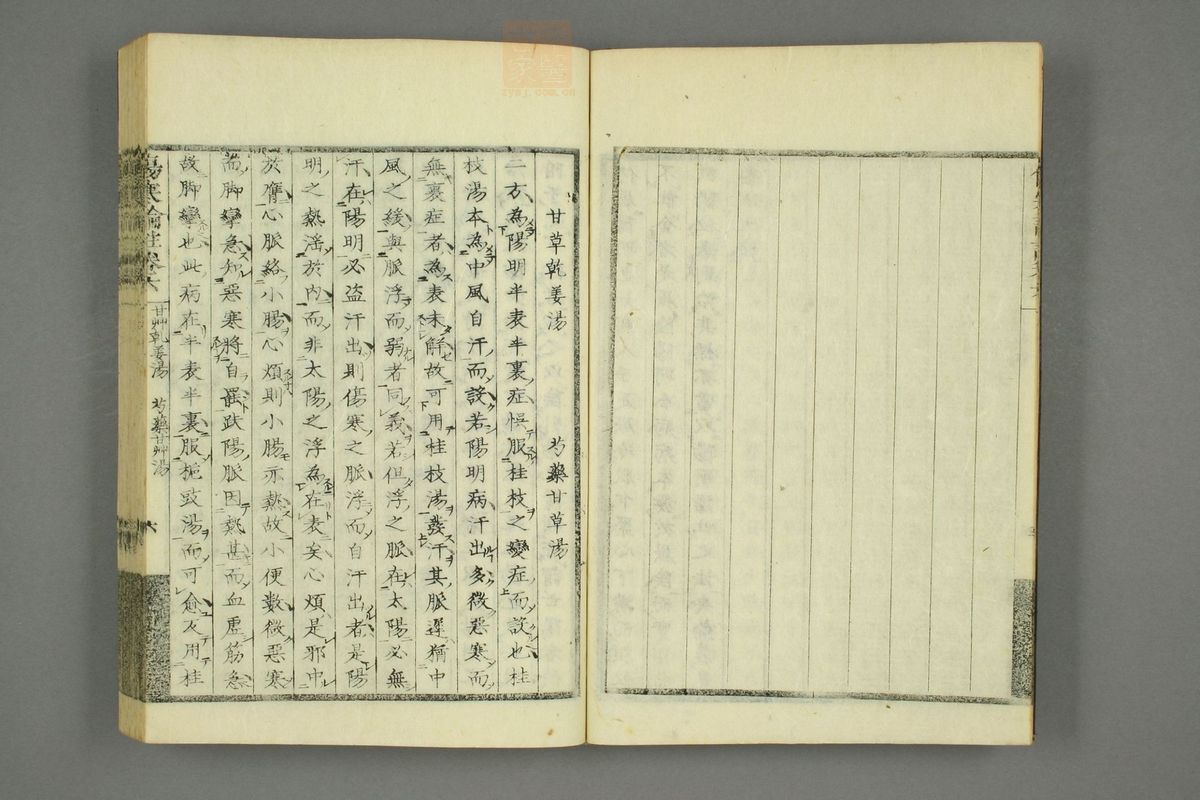 甘草乾姜湯　芍藥甘草湯
二方為陽明半表半裏症悞服桂枝之變症而設也桂
枝湯本為中風自汗而設若陽明病汗出多微惡寒而
無裏症者為表未解故可用桂枝湯發汗其脈遲猶中
風之緩與脈浮而弱者同義若但浮之脈在太陽必無
汗在陽明必盗汗出則傷寒之脈浮而自汗出者是陽
明之熱滛於內而非太陽之浮為在表矣心煩是邪中
於膺心脈絡小腸心煩則小腸亦熱故小便數微惡寒
而脚攣急知惡寒將自罷趺陽脈因熱甚而血虛筋急
故脚攣也此病在半表半裏服梔豉湯而可愈反用桂
傷寒論註卷六
甘艸乾姜湯　芍藥甘艸湯
六
zysj.com.cn